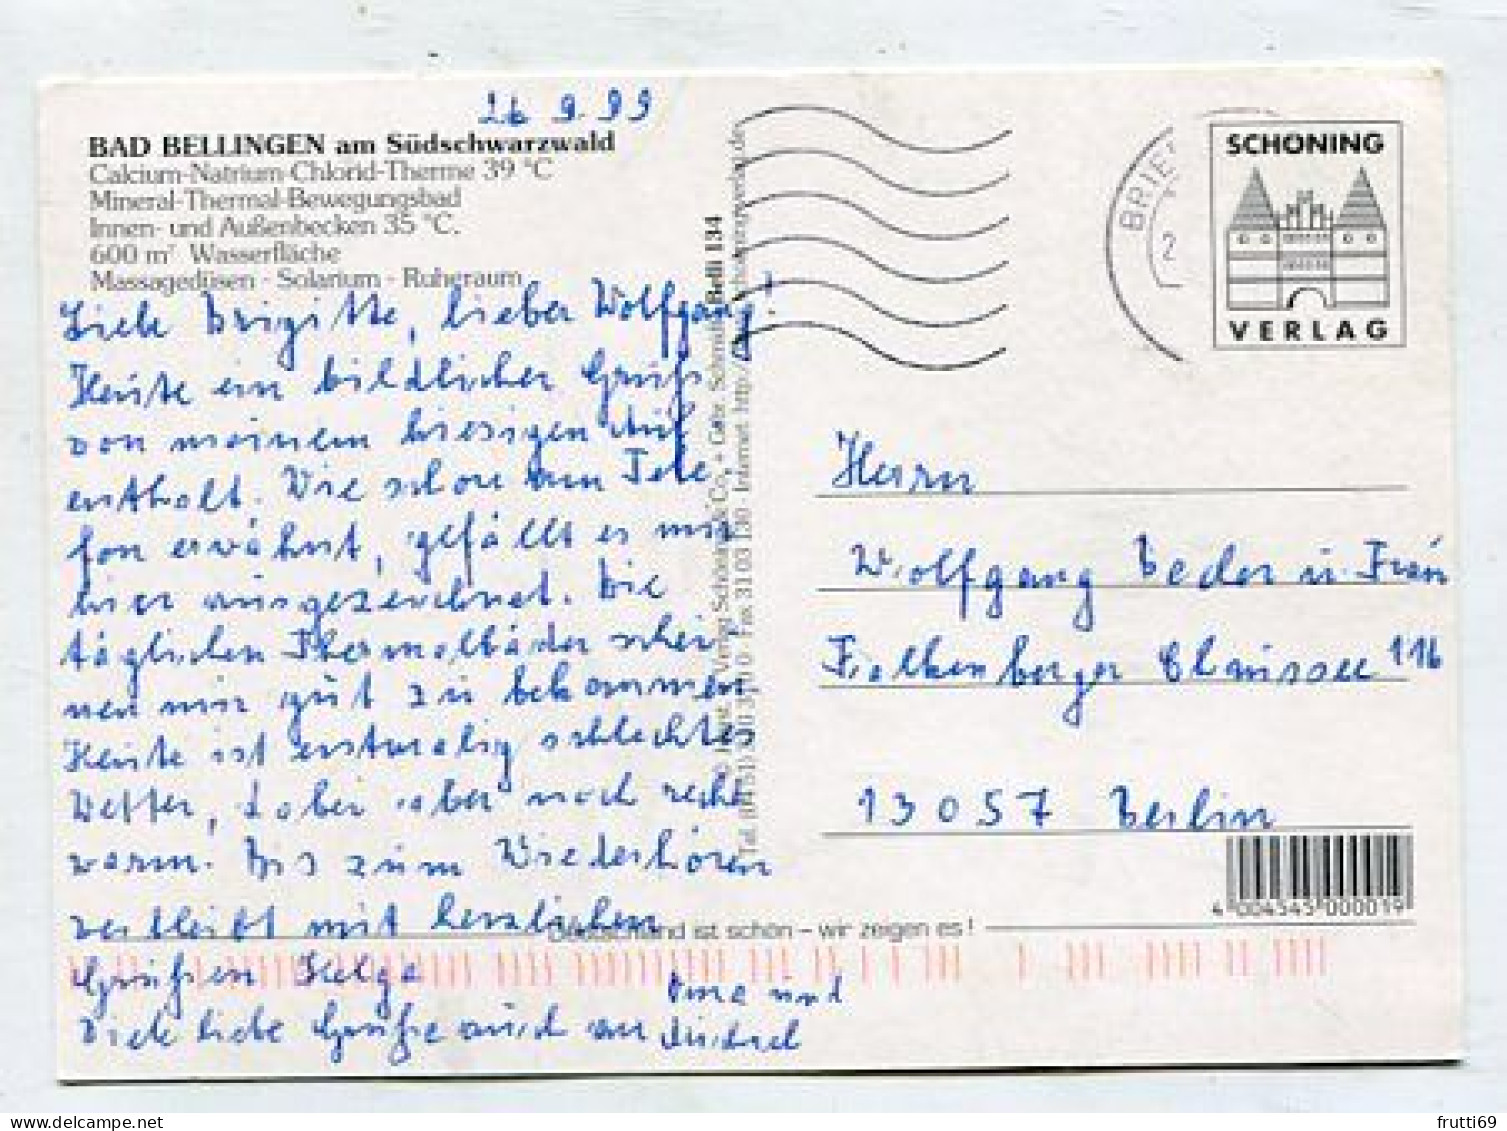 26.9.99
BAD BELLINGEN am Südschwarzwald
Calcium-Natrium-Chlorid-Therme 39 °C
Mineral-Thermal-Bewegungsbad
Innen- und Außenbecken 35 °C.
600 m² Wasserfläche
Massagedüsen - Solarium - Ruheraum
Liebe Brigitte, lieber Wolfgang!
Heute ein bildlicher Gruß
von meinem hiesigen Auf
enthalt. Wie schon am Tele
fon erwähnt, gefällt es mir
hier ausgezeichnet. Die
täglichen Thermalbäder schei
nen mir gut zu bekommen
Heute ist erstmalig schlechtes
Wetter, dabei aber noch recht
warm. Bis zum Wiederhören
verbleibt mit herzlichen
Grüßen Helga
Viele liebe Grüße auch an
und
Michael
Belli 134
SCHÖNING
VERLAG
BRIE
2
Herrn
Wolfgang u. Frau
Falkenberger Chaussee 116
13057 Berlin
4 004545 000019
Deutschland ist schön – wir zeigen es!
frutti69